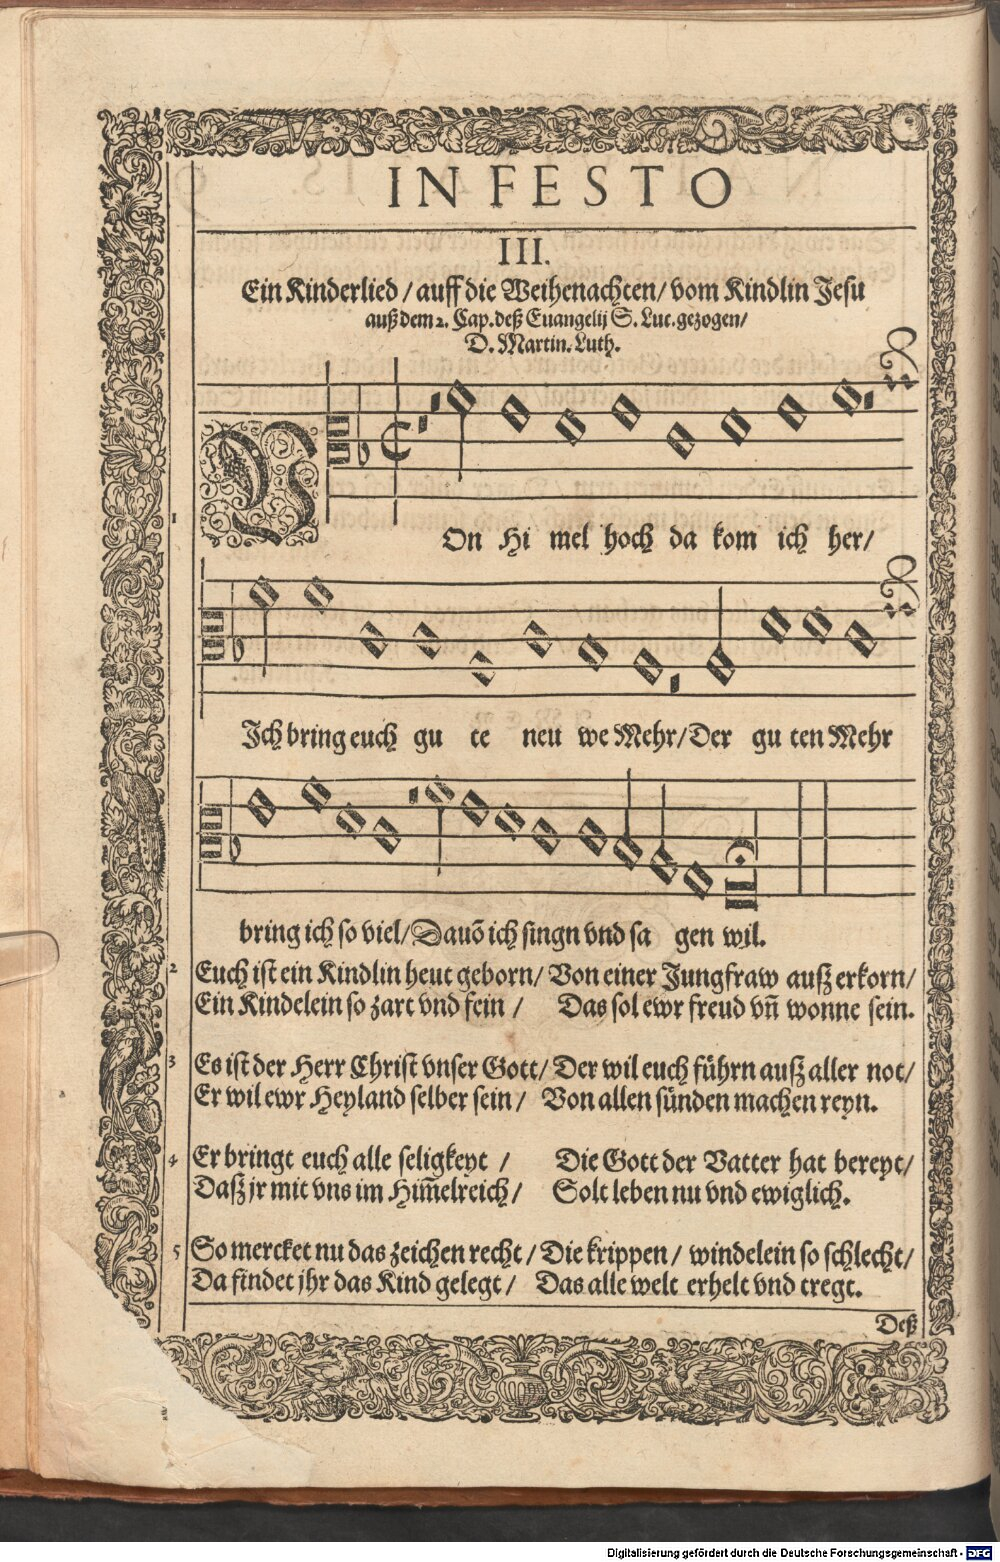 IN FESTO
III.
Ein Kinderlied / auff die Weihenachten / vom Kindlin Jesu
auß dem 2. Cap. deß Euangelij S. Luc. gezogen /
D. Martin. Luth.
1 VOn Hi mel hoch da kom ich her /
Ich bring euch gu te neu we Mehr / Der gu ten Mehr
bring ich so viel / Dauō ich singn vnd sa gen wil.
2 Euch ist ein Kindlin heut geborn / Von einer Jungfraw auß erkorn /
Ein Kindelein so zart vnd fein / Das sol ewr freud vn̄ wonne sein.
3 Es ist der Herr Christ vnser Gott / Der wil euch führn auß aller not /
Er wil ewr Heyland selber sein / Von allen sünden machen reyn.
4 Er bringt euch alle seligkeyt / Die Gott der Vatter hat bereyt /
Daß jr mit vns im Him̄elreich / Solt leben nu vnd ewiglich.
5 So mercket nu das zeichen recht / Die krippen / windelein so schlecht /
Da findet jhr das Kind gelegt / Das alle welt erhelt vnd tregt.
Deß
Digitalisierung gefördert durch die Deutsche Forschungsgemeinschaft - DFG